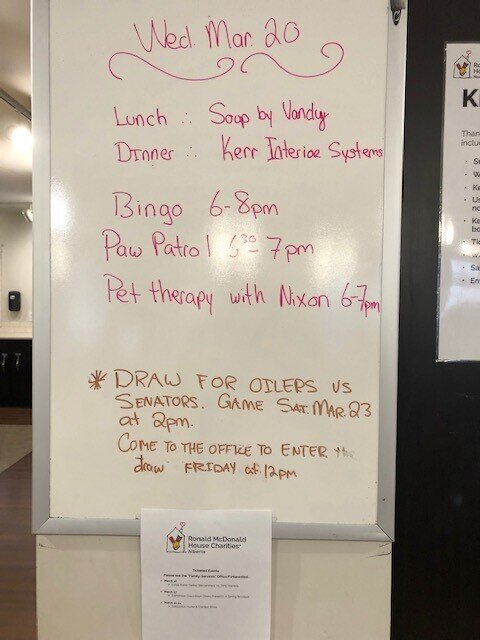 Wed. Mar. 20
Lunch : Soup by Vandy
Dinner : Kerr Interior Systems
Bingo 6-8pm
Paw Patrol 6:30-7pm
Pet therapy with Nixon 6-7pm
* DRAW FOR OILERS VS
SENATORS. GAME SAT. MAR. 23
at 2pm.
COME TO THE OFFICE TO ENTER the
draw FRIDAY at 12pm
Ronald McDonald
House Charities
Alberta
Ticketed Events